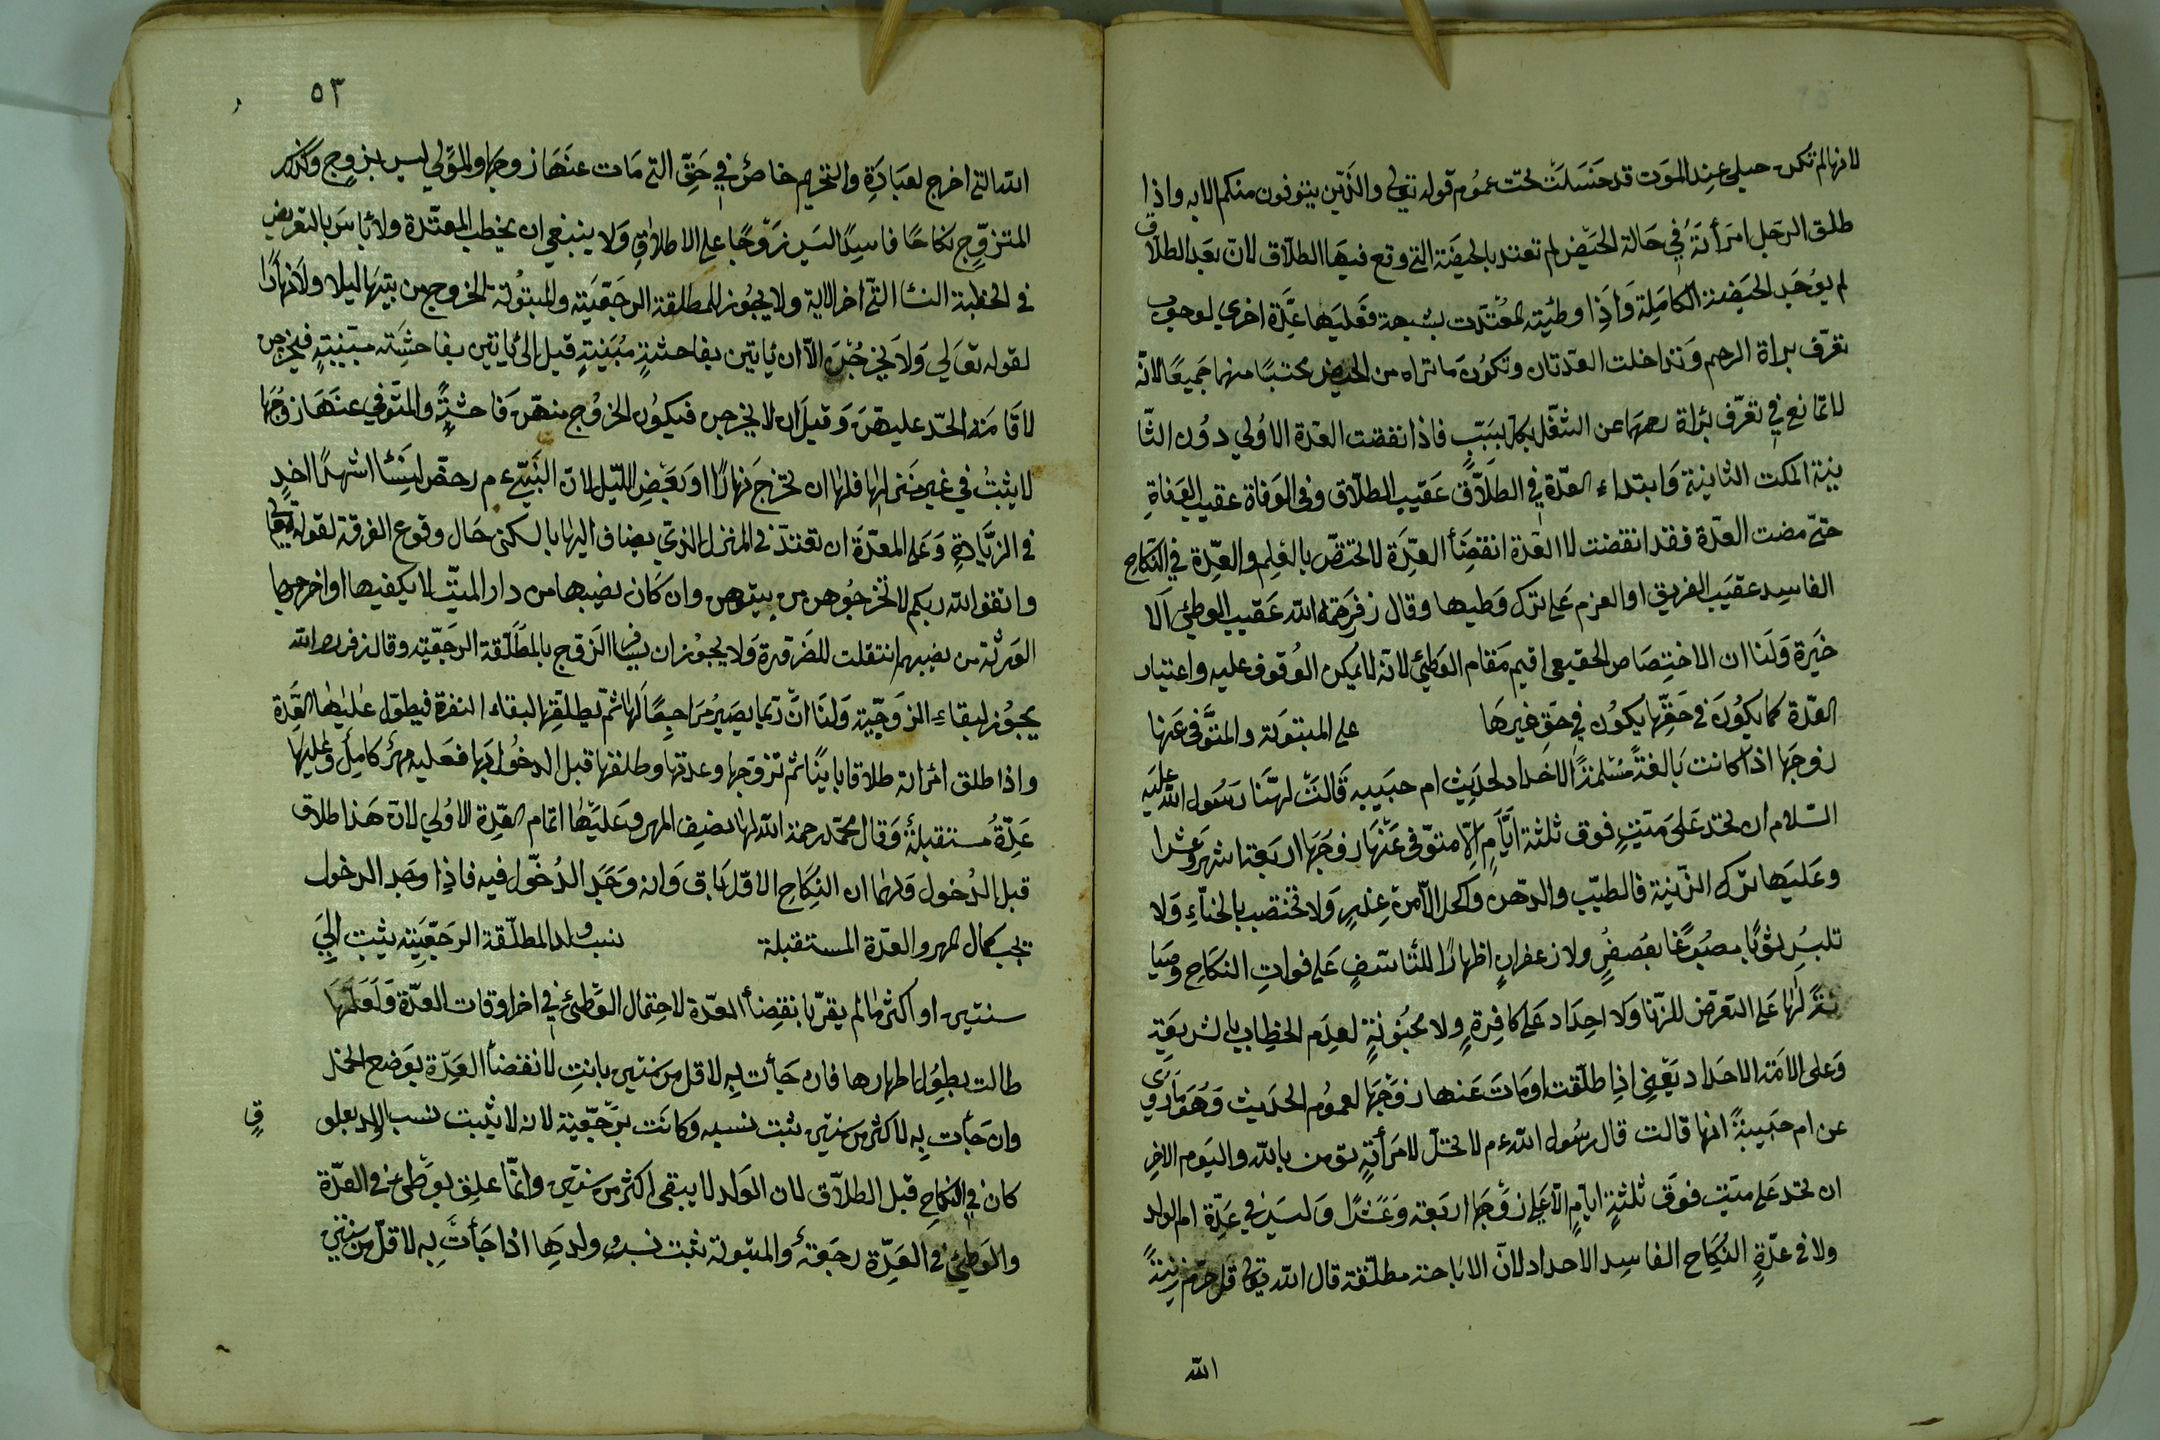 لانها لم تكن حبلى عند الموت قد حنسلت تحت عموم قوله تعالى والذين يتوفون منكم الايه واذا
طلق الرجل امرأته في حالة الحيض لم تعتد بالحيضة التي وقع فيها الطلاق لان بعد الطلاق
لم يوجد الحيضة الكاملة واذا وطئت المعتدت بشبهة فعليها عدة اخرى لوجوب
تعرف براة الرحم وتتداخلت العدتان وتكون ما تراه من الحيض محتسبا منهما جميعا لانه
لا تمانع في تعرف براة رحمها عن الشغل بكل سبب فاذا نقضت العدة الاولى دون الثا
نية المكث الثانية وابتداء العدة في الطلاق عقيب الطلاق وفي الوفاة عقيب الوفاة
حتى مضت العدة فقد انقضت لا العدة انقضأ العدة لا تختص بالعلم والعدة في النكاح
الفاسد عقيب الفريق او العزم على ترك وطيها وقال زفر رحمة الله عقيب الوطئ الا
خيرة ولنا ان الاختصاص الحقيقي اقيم مقام الوطئ لانه لا يمكن الوقوف عليه واعتبار
العدة كما يكون في حقها يكون في حق غيرها على المبتوتة والمتوفى عنها
زوجها اذا كانت بالغة مسلمة الاحداد لحديث ام حبيبه قالت لهنا رسول الله عليه
السلام ان تحد على ميت فوق ثلثة ايام الا متوفى عنها زوجها اربعة اشهر وعشرا
وعليها ترك الزينة فالطيب والدهن والكحل الا من عذر ولا تختضب بالحناء ولا
تلبس ثوبا مصبوغا بعصفر ولا زعفران اظهارا للتأسف على فوات النكاح وصيا
نة لها على التعرض للزنا ولا احداد على كافرة ولا مجنونة لعدم الخطاب بالشريعة
وعلى الامة الاحداد يعني اذا طلقت او مات عنها زوجها لعموم الحديث وهو ما روي
عن ام حبيبة انها قالت قال رسول الله عم لا تحل لامرأة تؤمن بالله واليوم الاخر
ان تحد على ميت فوق ثلثة ايام الا على زوجها اربعة وعشرا وليس في عدة ام الولد
ولا في عدة النكاح الفاسد الاحداد لان الاباحة مطلقة قال الله تعالى قل من حرم زينة
الله
٥٣
الله التي اخرج لعباده والتحريم خاص في حق التي مات عنها زوجها والمولى ليس بزوج وكذلك
المتزوج نكاحا فاسدا ليس زوجا على الاطلاق ولا ينبغي ان يخطب المعتدة ولا باس بالتعريض
في الخطبة النسا التي اخر الاية ولا يجوز للمطلقة الرجعية والمبتوتة الخروج من بيتها ليلا ولا نهارا
لقوله تعالى ولا يخرجن الا ان ياتين بفاحشة مبينة قيل الى ياتين بفاحشة مبينة فيخرجن
لاقامة الحد عليهن وقيل ان لا يخرجن فيكون الخروج منهن فاحشة والمتوفى عنها زوجها
لا يثبت في غير منزلها فلها ان تخرج نهارا او بعض الليل لان النبي عم رخص لنسا اشهدا احد
في الزيادة وعلى المعدة ان تعتد في المنزل الذي يضاف اليها بالسكنى حال وقوع الفرقة لقوله تعالى
واتقوا الله ربكم لا تخرجوهن من بيوتهن وان كان نصيبها من دار الميت لا يكفيها او اخرجها
الورثة من نصيبهم انتقلت للضرورة ولا يجوز ان يسافر الزوج بالمطلقة الرجعية وقال زفر ره الله
يجوز لبقاء الزوجية ولنا ان ربما يصير مراجعا لها ثم يطلقها لبقاء النفرة فيطول عليها العدة
واذا طلق امراته طلاقا باينا ثم تزوجها وعدتها وطلقها قبل الدخول بها فعليه مهر كامل وعليها
عدة مستقبلة وقال محمد رحمة الله لها نصف المهر وعليها اتمام العدة الاولى لان هذا طلاق
قبل الدخول ولهما ان النكاح الاول باق وانه وجد الدخول فيه فاذا وجد الدخول
يجب كمال المهر والعدة المستقبلة نسب ولد المطلقة الرجعية يثبت الي
سنتين او اكثر ما لم يقر بانقضأ العدة لاحتمال الوطئ في اخر اوقات العدة ولعلها
طالت بطول اطهارها فان جأت به لاقل من سنتين بانت لانقضأ العدة بوضع الحمل
وان جأت به لاكثر من سنتين ثبت نسبه وكانت رجعية لانه لا يثبت نسب الولد بعلوق
كان في النكاح قبل الطلاق لان الولد لا يبقى اكثر من سنتين وانما علق بوطئ في العدة
والوطئ في العدة رجعة والمبتوتة ثبت نسب ولدها اذا جأت به لاقل من سنتين